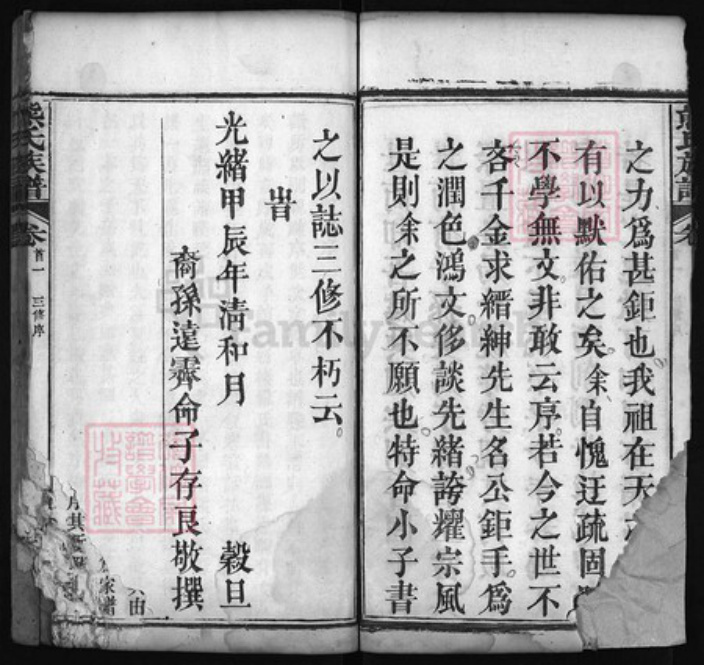 之力爲甚鉅也我祖在天
有以默佑之矣余自愧迂疏固
不學無文非敢云序若今之世不
吝千金求縉紳先生名公鉅手爲
之潤色鴻文侈談先緒誇耀宗風
是則余之所不願也特命小子書
之以誌三修不朽云
旹
光緒甲辰年清和月 穀旦
裔孫遠霽命子存良敬撰
熊氏族譜 卷首一 三修序
家譜
FamilySearch